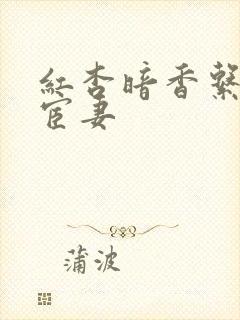 紅杏暗香繫
宦妻
蒲波